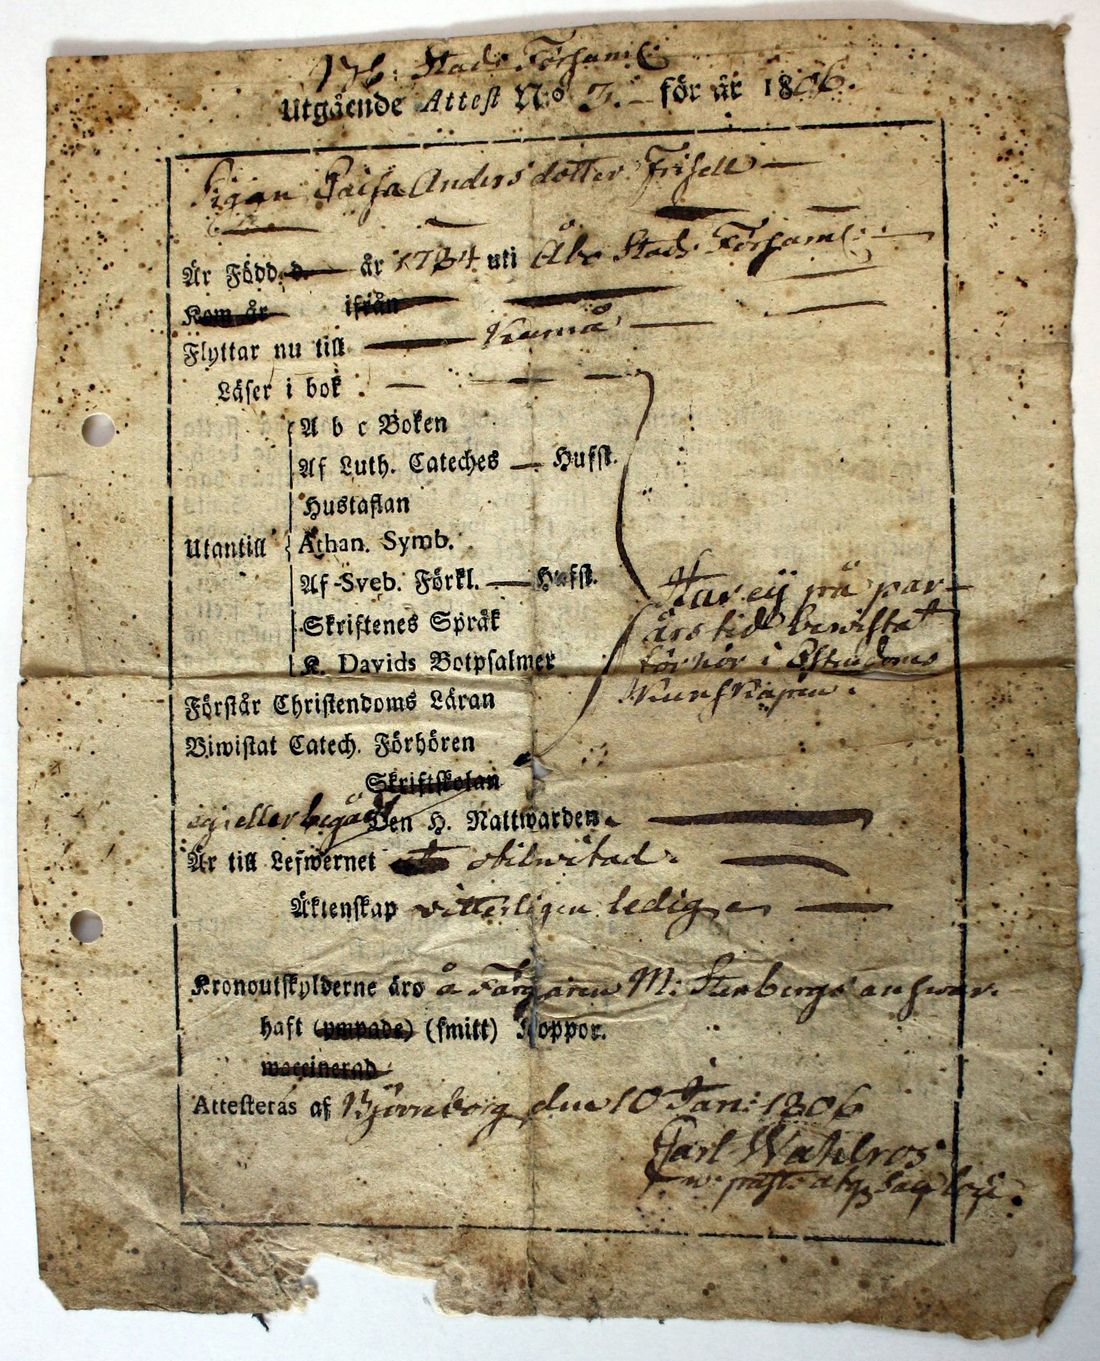 Stads Församl:
Utgående Attest No 3. för år 1806.
Pigan Caisa Andersdotter Frisell
Är Född d. år 1784 uti Åbo Stads Församl:
Kom år ifrån
Flyttar nu till Kumå
Läser i bok
A b c Boken
Af Luth. Cateches — Hufst.
Hustaflan
Utantill Athan. Symb.
Af Sveb. Förkl. — Hufst.
Skriftenes Språk
K. Davids Botpsalmer
Har ej på par
års tid bewistat
förhör i Christendoms
Kunskapen.
Förstår Christendoms Läran
Biwistat Catech. Förhören
Skriftskolan
ej eller begådt Den H. Nattwarden.
Är till Lefwernet
Äktenskap vitterligen ledig
Kronoutskylderne äro å Färgaren M: Stenbergs answar.
haft (ympade) (smitt) Koppor.
waccinerad
Attesteras af Björneborg den 10 Jan: 1806
Carl Wahlros